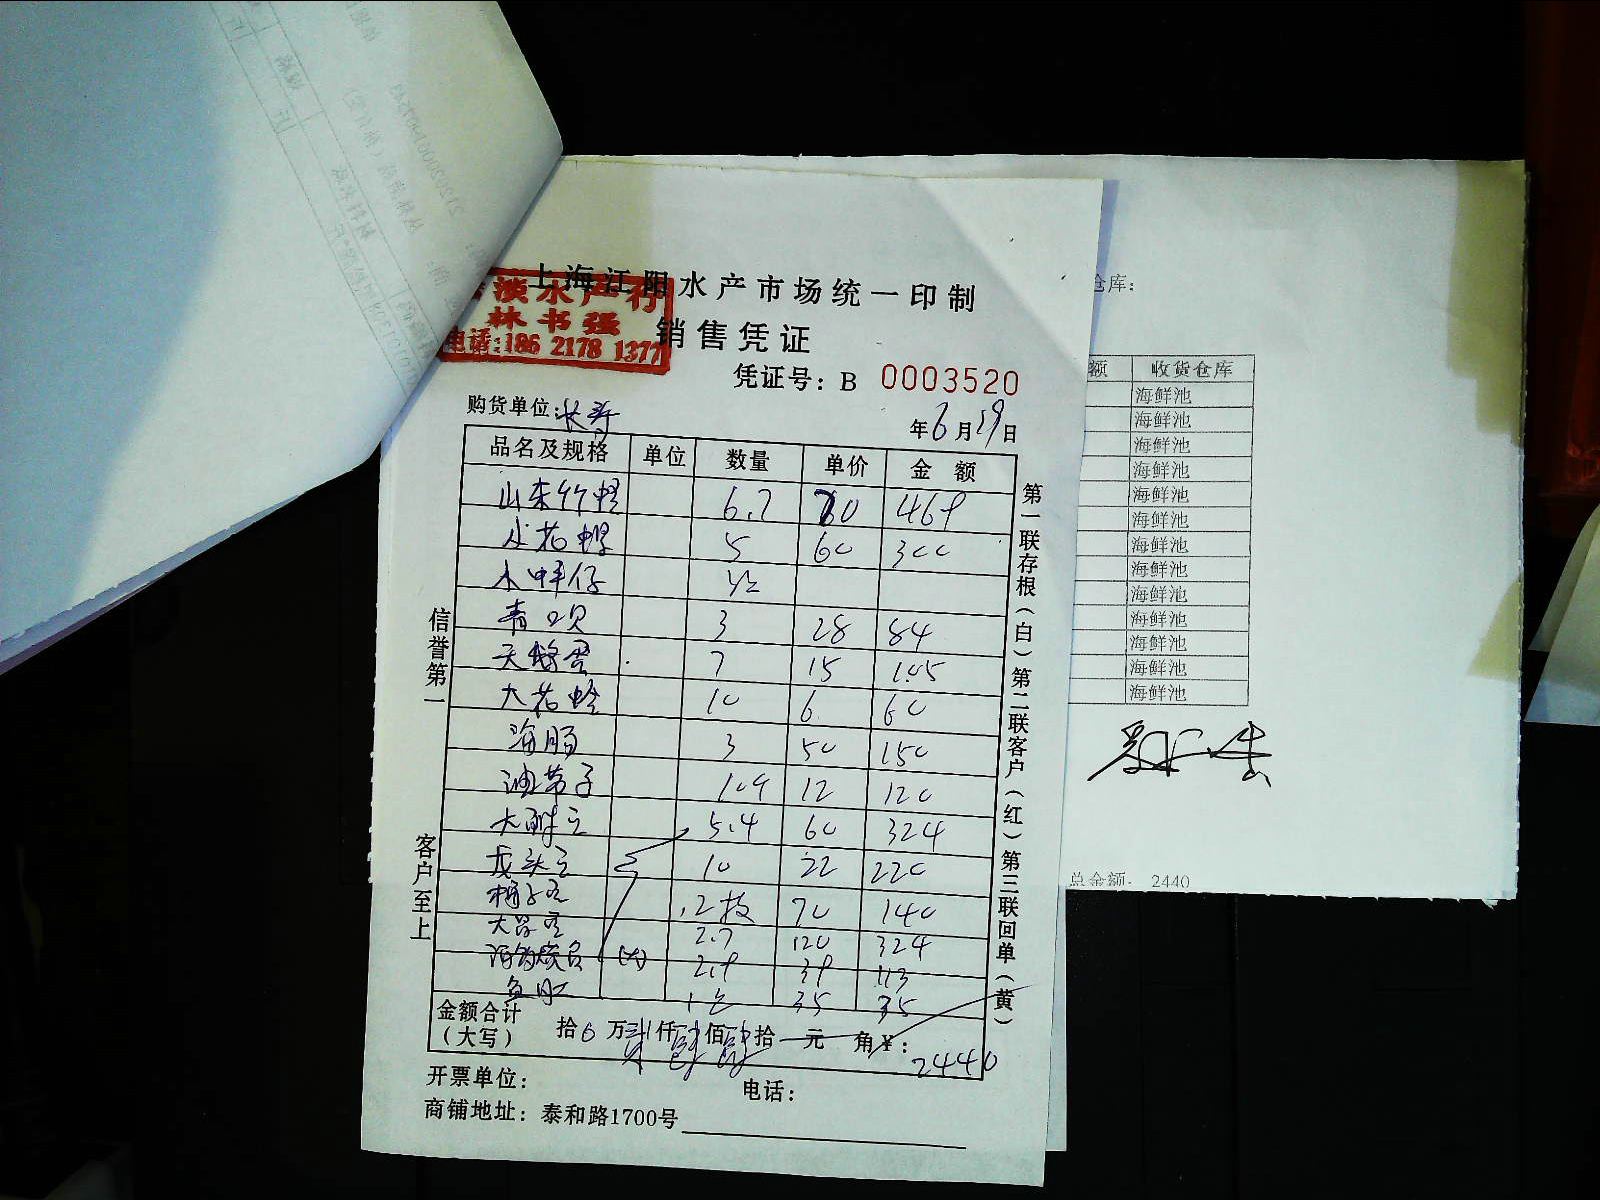 上海江阳水产市场统一印制
淡水产行
林书强
电话:186 2178 1377
销售凭证
凭证号: B 0003520
购货单位: 长寿
年6月29日
品名及规格 单位 数量 单价 金额
山东竹蛏 6.7 70 469
小花螺 5 60 300
水蚌仔 1/2
青口贝 3 28 84
天鹅蛋 7 15 105
大花蛤 10 6 60
海肠 3 50 150
油带子 10.4 12 120
5.4 60 324
龙头 10 22 220
2枝 70 140
2.7 120 324
2.9 39 113
鱼肚 35 35
金额合计
(大写) 拾0万贰仟肆佰肆拾 元 角¥: 2440
开票单位: 电话:
商铺地址: 泰和路1700号
信誉第一
客户至上
第一联存根(白)第二联客户(红)第三联回单(黄)
仓库:
额 收货仓库
海鲜池
海鲜池
海鲜池
海鲜池
海鲜池
海鲜池
海鲜池
海鲜池
海鲜池
海鲜池
海鲜池
海鲜池
海鲜池
总金额: 2440